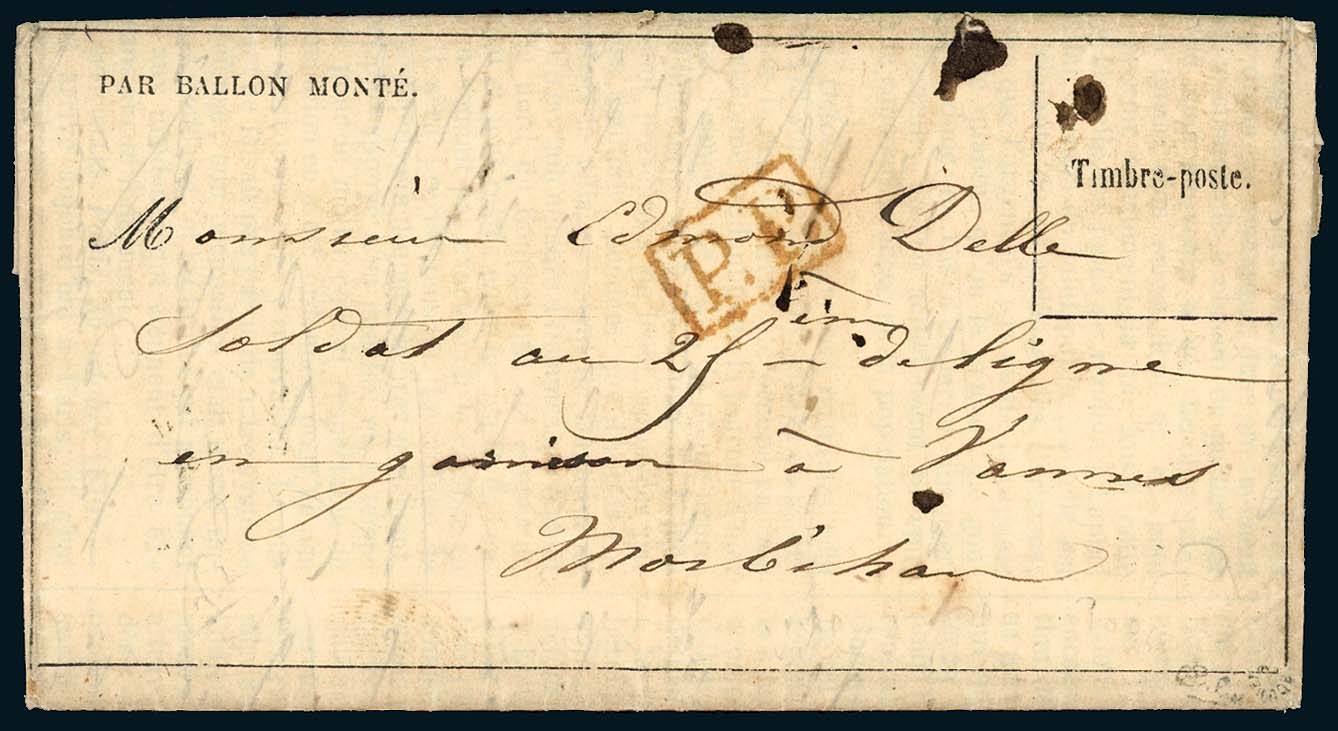 PAR BALLON MONTÉ.
Timbre-poste.
P.P.
Monsieur Edmond Delle
Soldat au 25 ème de ligne
en garnison à Vannes
Morbihan